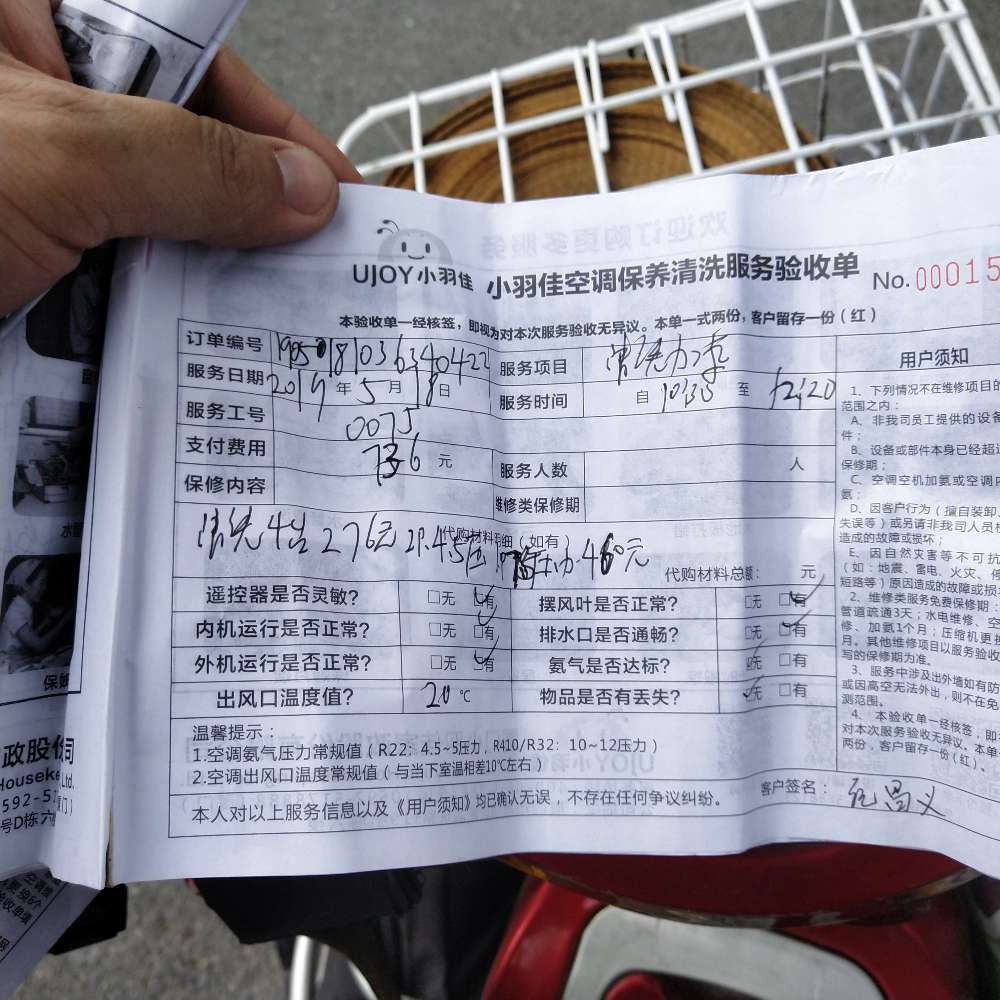 UJOY小羽佳 小羽佳空调保养清洗服务验收单 No.00015
本验收单一经核签，即视为对本次服务验收无异议。本单一式两份，客户留存一份（红）
订单编号 服务项目
服务日期 2019 年 5 月 18 日 服务时间 自 10:35 至 12:20
服务工号 0075
支付费用 736 元 服务人数 人
保修内容 维修类保修期
清洗4台276元 代购材料明细（如有） 460元
代购材料总额： 元
遥控器是否灵敏？ □无 □有 摆风叶是否正常？ □无 □有
内机运行是否正常？ □无 □有 排水口是否通畅？ □无 □有
外机运行是否正常？ □无 □有 氨气是否达标？ □无 □有
出风口温度值？ 20 ℃ 物品是否有丢失？ □无 □有
温馨提示：
1.空调氨气压力常规值（R22：4.5~5压力，R410/R32：10~12压力）
2.空调出风口温度常规值（与当下室温相差10℃左右）
本人对以上服务信息以及《用户须知》均已确认无误，不存在任何争议纠纷。 客户签名：
用户须知
1、下列情况不在维修项目的
范围之内：
A、非我司员工提供的设备
件；
B、设备或部件本身已经超过
保修期；
C、空调空机加氨或空调内
氨；
D、因客户行为（擅自装卸、
失误等）或另请非我司人员
造成的故障或损坏；
E、因自然灾害等不可抗
（如：地震、雷电、火灾、
短路等）原因造成的故障或损
2、维修类服务免费保修期：
管道疏通3天；水电维修、空
修、加氨1个月；压缩机更换
月，其他维修项目以服务验收
写的保修期为准。
3、服务中涉及出外墙如有防
或因高空无法外出，则不在免
测范围。
4、本验收单一经核签，即
对本次服务验收无异议。本单
两份，客户留存一份（红）。
政股份
司
Houseke
Ltd.
592-5
号D栋六